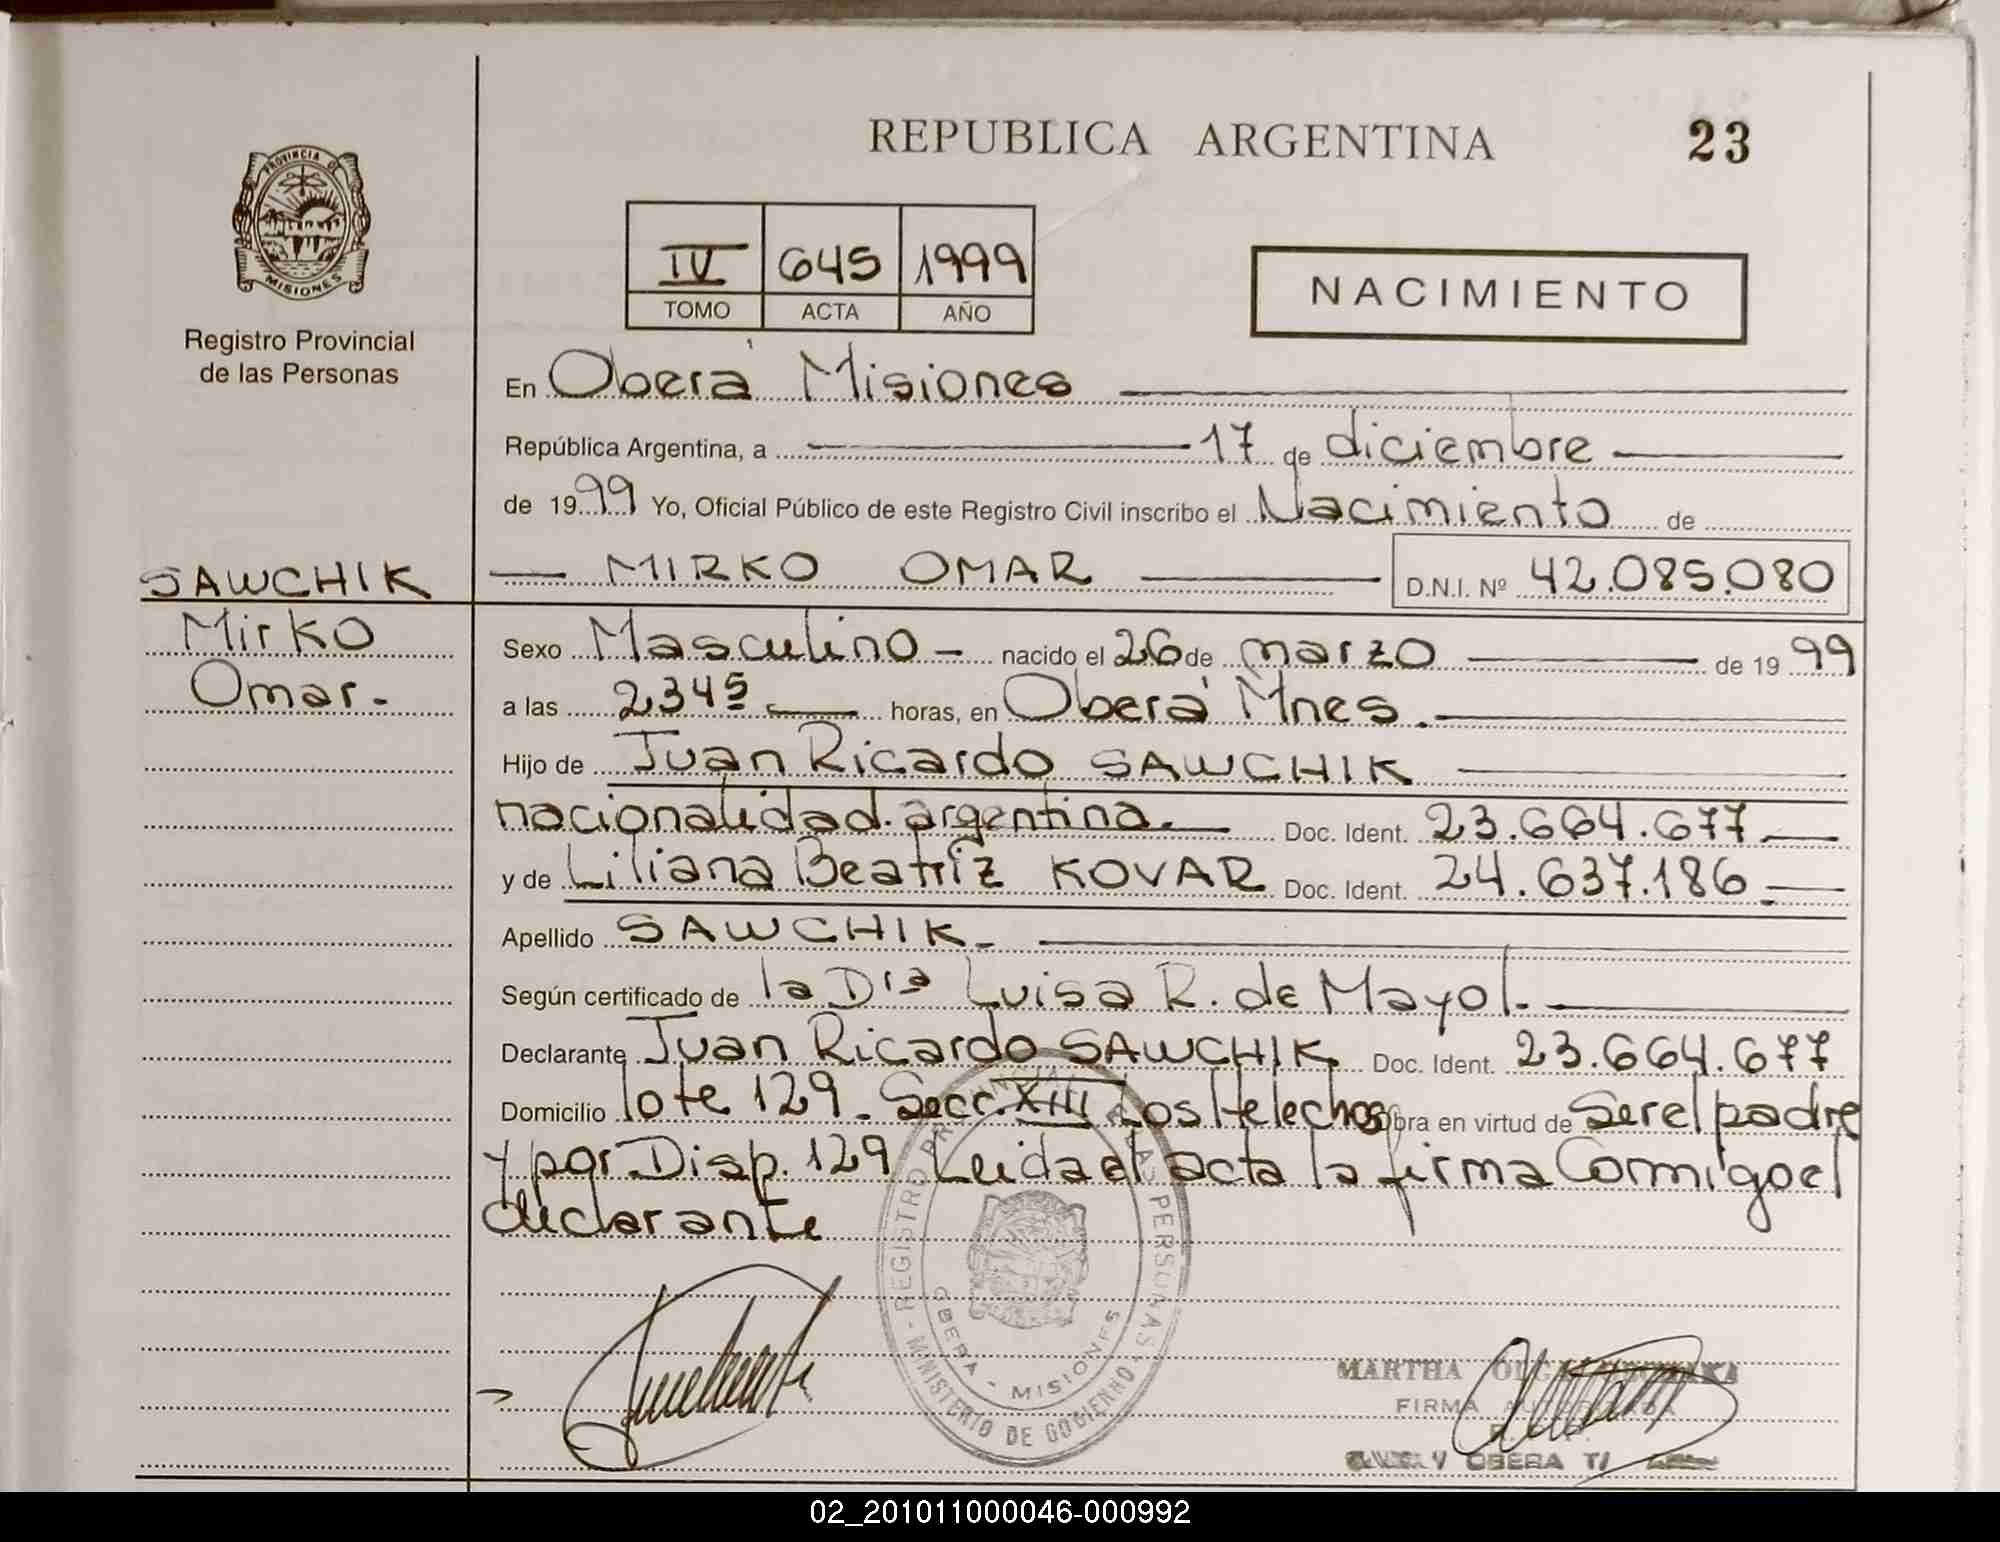 REPUBLICA ARGENTINA 23
PROVINCIA DE
MISIONES
Registro Provincial
de las Personas
IV 645 1999
TOMO ACTA AÑO
NACIMIENTO
En Oberá Misiones
República Argentina, a 17 de diciembre
de 1999 Yo, Oficial Público de este Registro Civil inscribo el Nacimiento de
SAWCHIK
Mirko
Omar.-
MIRKO OMAR D.N.I. Nº 42.085.080
Sexo Masculino - nacido el 26 de marzo de 1999
a las 2345 horas, en Oberá Mnes.
Hijo de Juan Ricardo SAWCHIK
nacionalidad. argentina. Doc. Ident. 23.664.677
y de Liliana Beatriz KOVAR Doc. Ident. 24.637.186
Apellido SAWCHIK.-
Según certificado de la Dra Luisa R. de Mayol.
Declarante Juan Ricardo SAWCHIK Doc. Ident. 23.664.677
Domicilio lote 129. Secc. XIII Los Helechos obra en virtud de Ser el padre
y por Disp. 129 Leida el acta la firma Conmigo el
declarante
REGISTRO PROVINCIAL DE LAS PERSONAS - MINISTERIO DE GOBIERNO
OBERA - MISIONES
MARTHA OLGA
FIRMA AUTORIZADA
OBERA
02_201011000046-000992